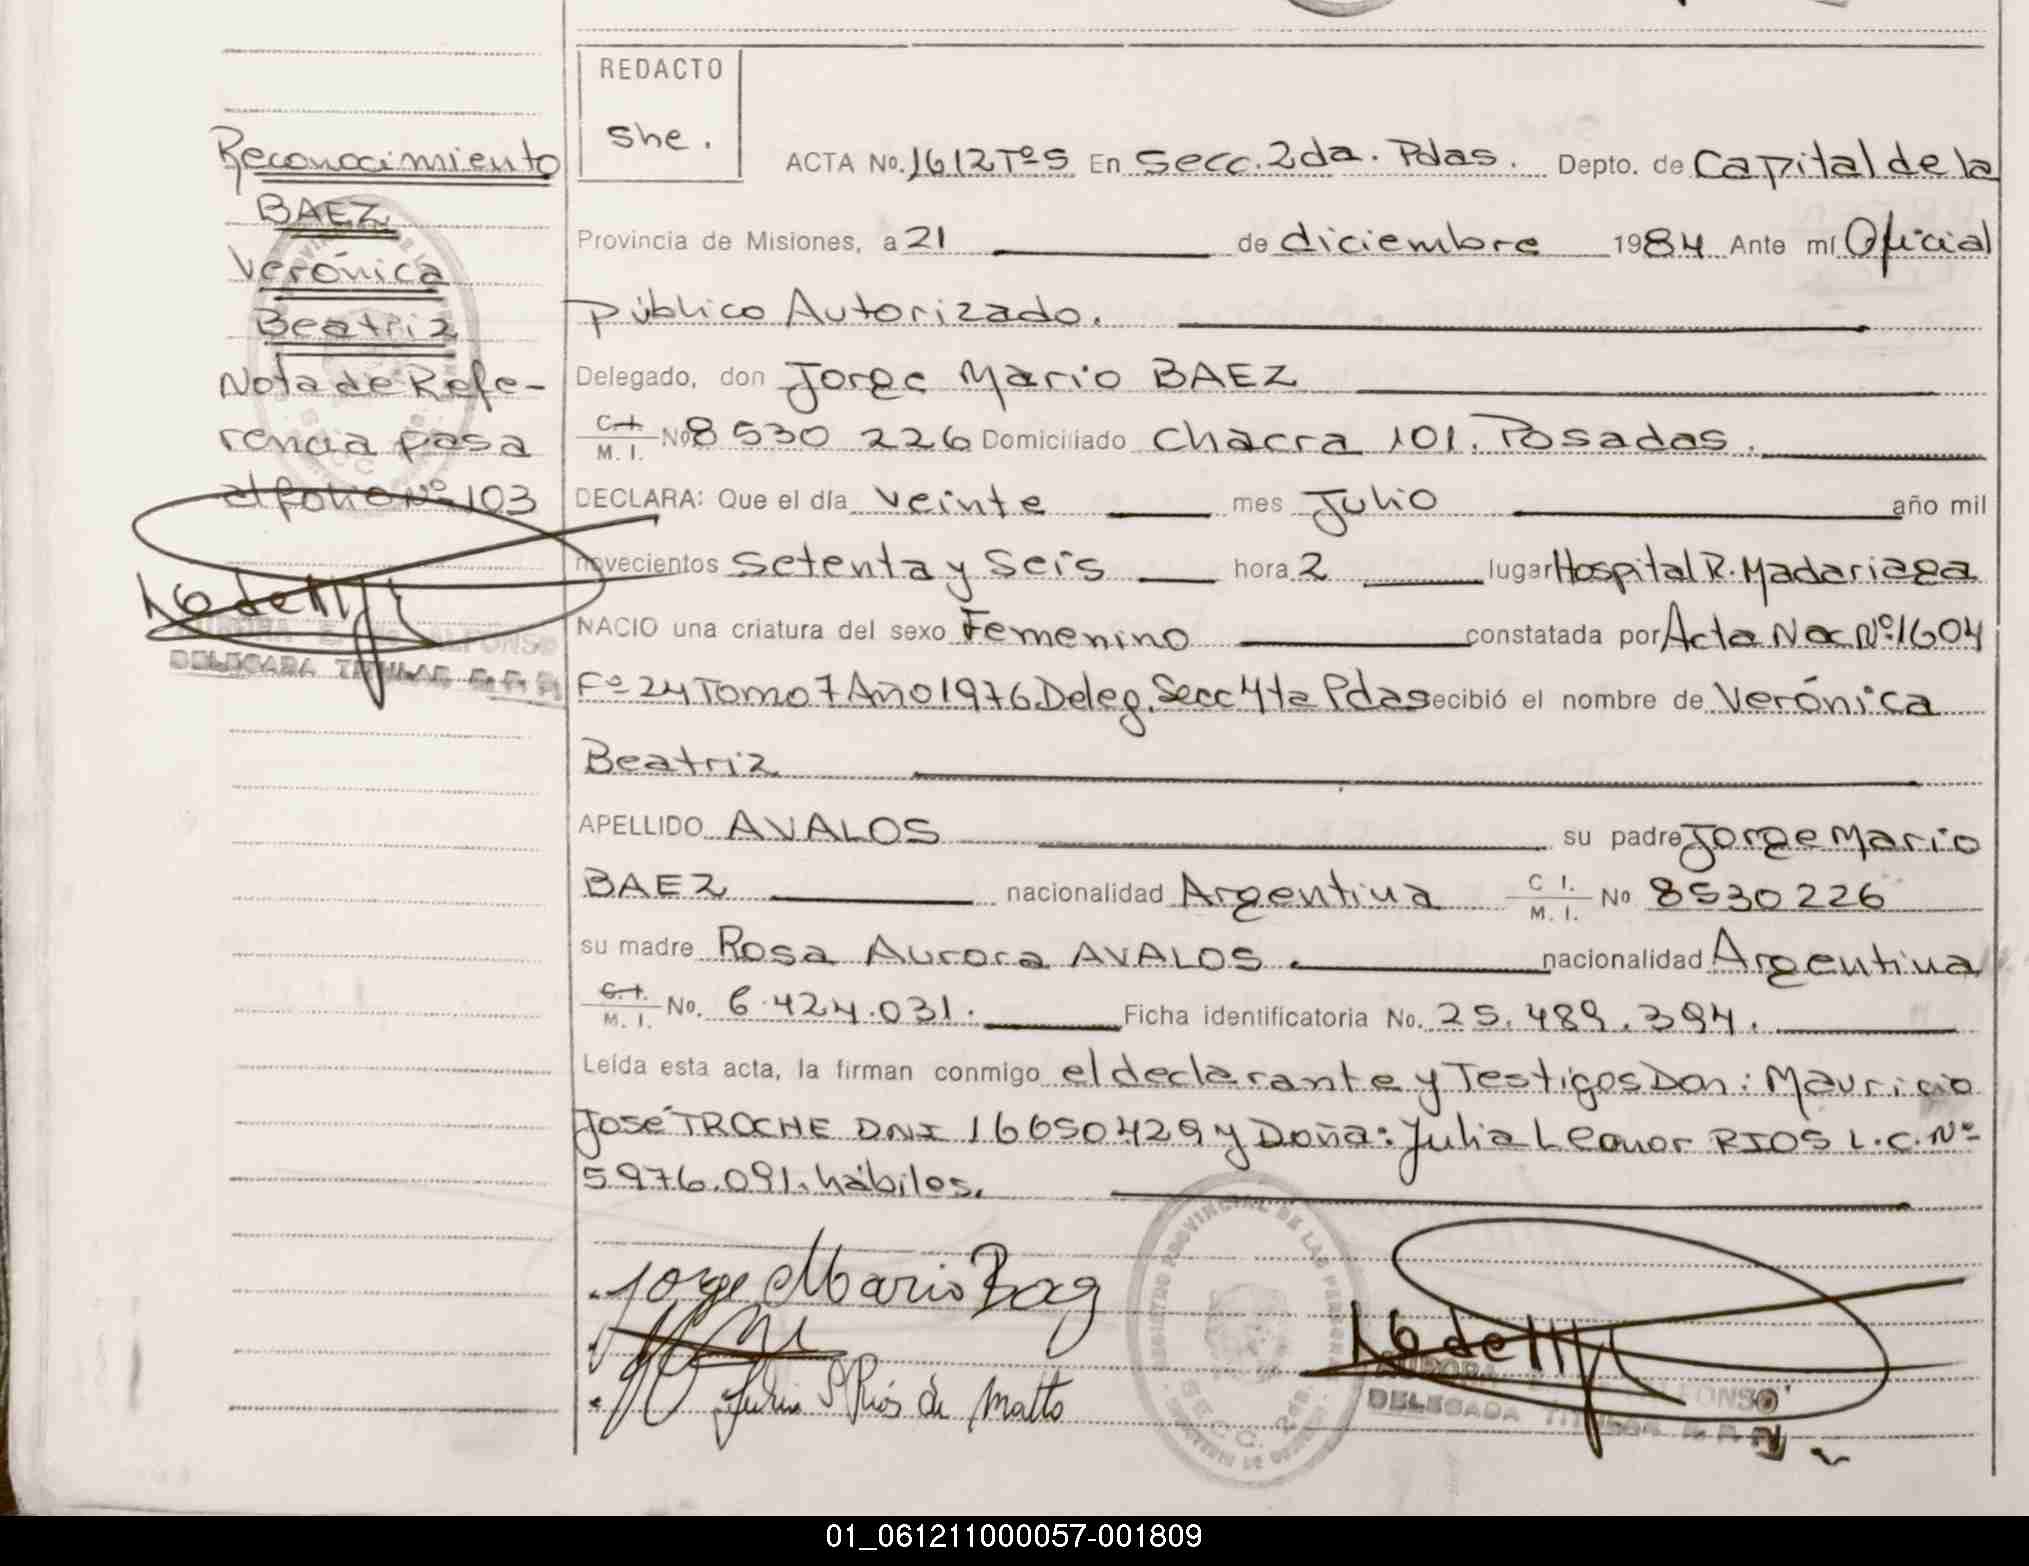 Reconocimiento
BAEZ
Verónica
Beatriz
Nota de Refe-
rencia pasa
al folio Nº 103
DELEGADA TITULAR R. P. P.
REDACTO
she.
ACTA No. 1612 Tº 5 En Secc. 2da. Pdas. Depto. de Capital de la
Provincia de Misiones, a 21 de diciembre 1984 Ante mí Oficial
Público Autorizado.
Delegado, don Jorge Mario BAEZ
C.I. M. I. No 8 530 226 Domiciliado Chacra 101. Posadas.
DECLARA: Que el día veinte mes Julio año mil
novecientos setenta y seis hora 2 lugar Hospital R. Madariaga
NACIO una criatura del sexo Femenino constatada por Acta Nac Nº 1604
Fº 24 Tomo 7 Año 1976 Deleg. Secc 4ta Pdas ecibió el nombre de Verónica
Beatriz
APELLIDO AVALOS su padre Jorge Mario
BAEZ nacionalidad Argentina C I. M. I. No 8530226
su madre Rosa Aurora AVALOS. nacionalidad Argentina
C.I. M. I. No. 6.424.031. Ficha identificatoria No. 25.489.394.
Leída esta acta, la firman conmigo el declarante y Testigos Don: Mauricio
José TROCHE DNI 16650429 y Doña: Julia Leonor RIOS L.C. Nº
5976.091. hábiles.
Jorge Mario Baez
Ríos de Matto
REGISTRO PROVINCIAL DE LAS PERSONAS
SECC. 2da.
DELEGADA TITULAR R. P. P.
01_061211000057-001809